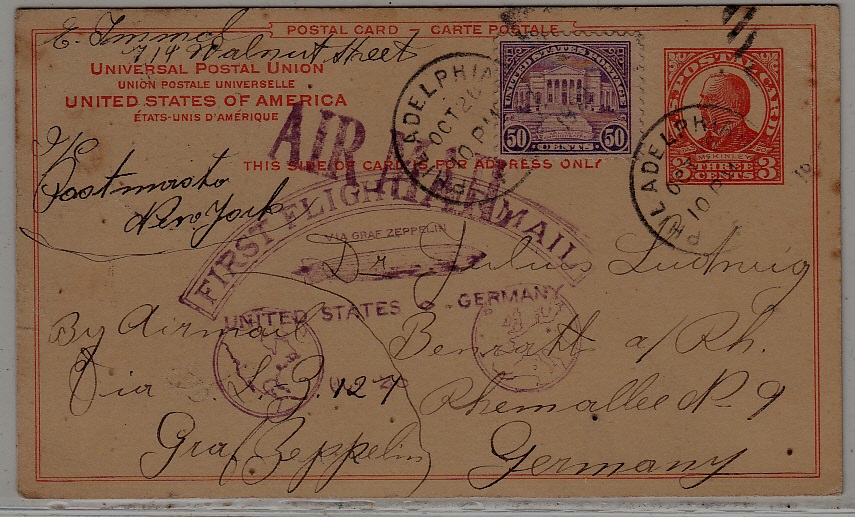 POSTAL CARD — CARTE POSTALE
E. Timmel
714 Walnut Street
UNIVERSAL POSTAL UNION
UNION POSTALE UNIVERSELLE
UNITED STATES OF AMERICA
ÉTATS-UNIS D'AMÉRIQUE
UNITED STATES POSTAGE
50 50
CENTS
U.S. POSTAL CARD
MCKINLEY
3 THREE 3
CENTS
PHILADELPHIA
OCT 26
10 PM
PHILADELPHIA
10 PM
AIR MAIL
THIS SIDE OF CARD IS FOR ADDRESS ONLY
Postmaster
New York
FIRST FLIGHT AIR MAIL
VIA GRAF ZEPPELIN
UNITED STATES GERMANY
Dr. Julius Ludwig
By Airmail
Benrath a/Rh.
Via L.Z. 127
Rhemallee No 9
Graf Zeppelin
Germany